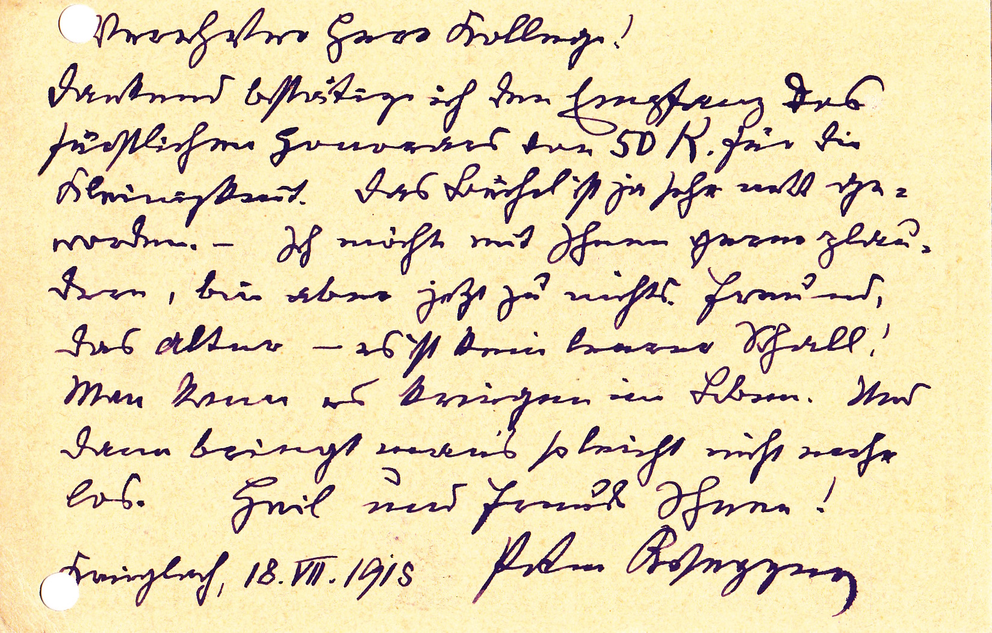 Verehrter Herr Kollege!
Dankend bestätige ich den Empfang des
fürstlichen Honorars von 50 K. für die
Das Büchel ist ja sehr nett ge-
worden. – Ich möcht mit Ihnen gerne plau-
dern, bin aber jetzt zu nichts. Freund,
das Alter – es ist kein leerer Schall!
Man kann es kriegen im Leben. Und
dann bringt man's so leicht nicht mehr
los. Heil und Freude Ihnen!
Krieglach, 18. VII. 1915 Peter Rosegger